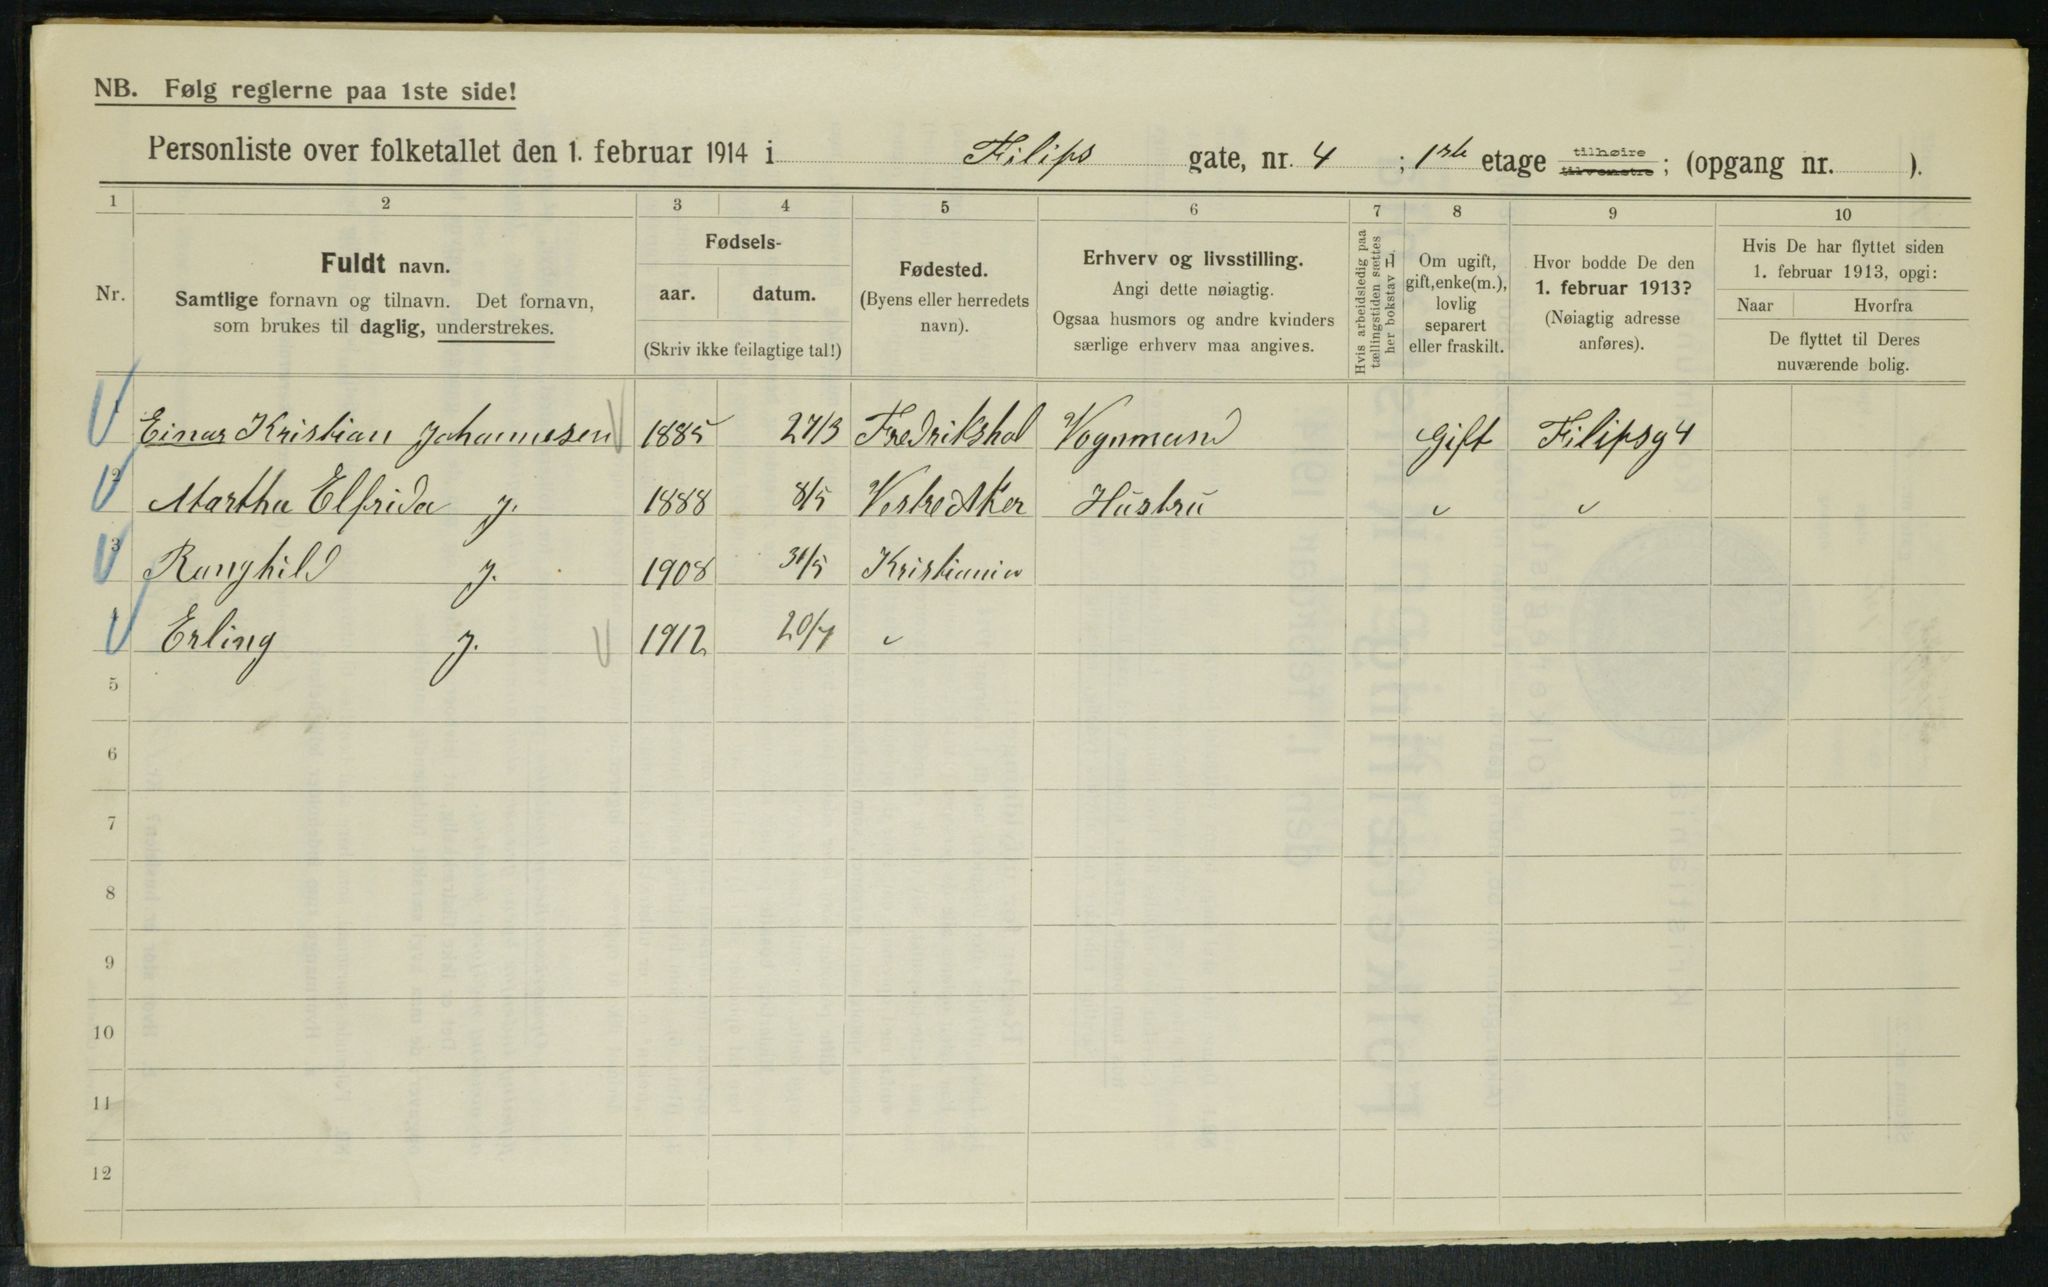 NB. Følg reglerne paa 1ste side!
Personliste over folketallet den 1. februar 1914 i Filips gate, nr. 4 ; 1ste etage tilhøire tilvenstre ; (opgang nr. ).
1 2 3 4 5 6 7 8 9 10
Nr.
Fuldt navn.
Samtlige fornavn og tilnavn. Det fornavn,
som brukes til daglig, understrekes.
Fødsels-
aar. datum.
(Skriv ikke feilagtige tal!)
Fødested.
(Byens eller herredets
navn).
Erhverv og livsstilling.
Angi dette nøiagtig.
Ogsaa husmors og andre kvinders
særlige erhverv maa angives.
Hvis arbeidsledig paa
tællingstiden sættes
her bokstav L.
Om ugift,
gift, enke(m.),
lovlig
separert
eller fraskilt.
Hvor bodde De den
1. februar 1913?
(Nøiagtig adresse
anføres).
Hvis De har flyttet siden
1. februar 1913, opgi:
Naar Hvorfra
De flyttet til Deres
nuværende bolig.
1 Einar Kristian Johannesen 1885 27/3 Fredrikshal Vognmand Gift Filipsg 4
2 Martha Elfrida J. 1888 8/5 Vestre Aker Hustru " "
3 Ranghild J. 1908 31/5 Kristiania
4 Erling J. 1912 20/7 "
5
6
7
8
9
10
11
12